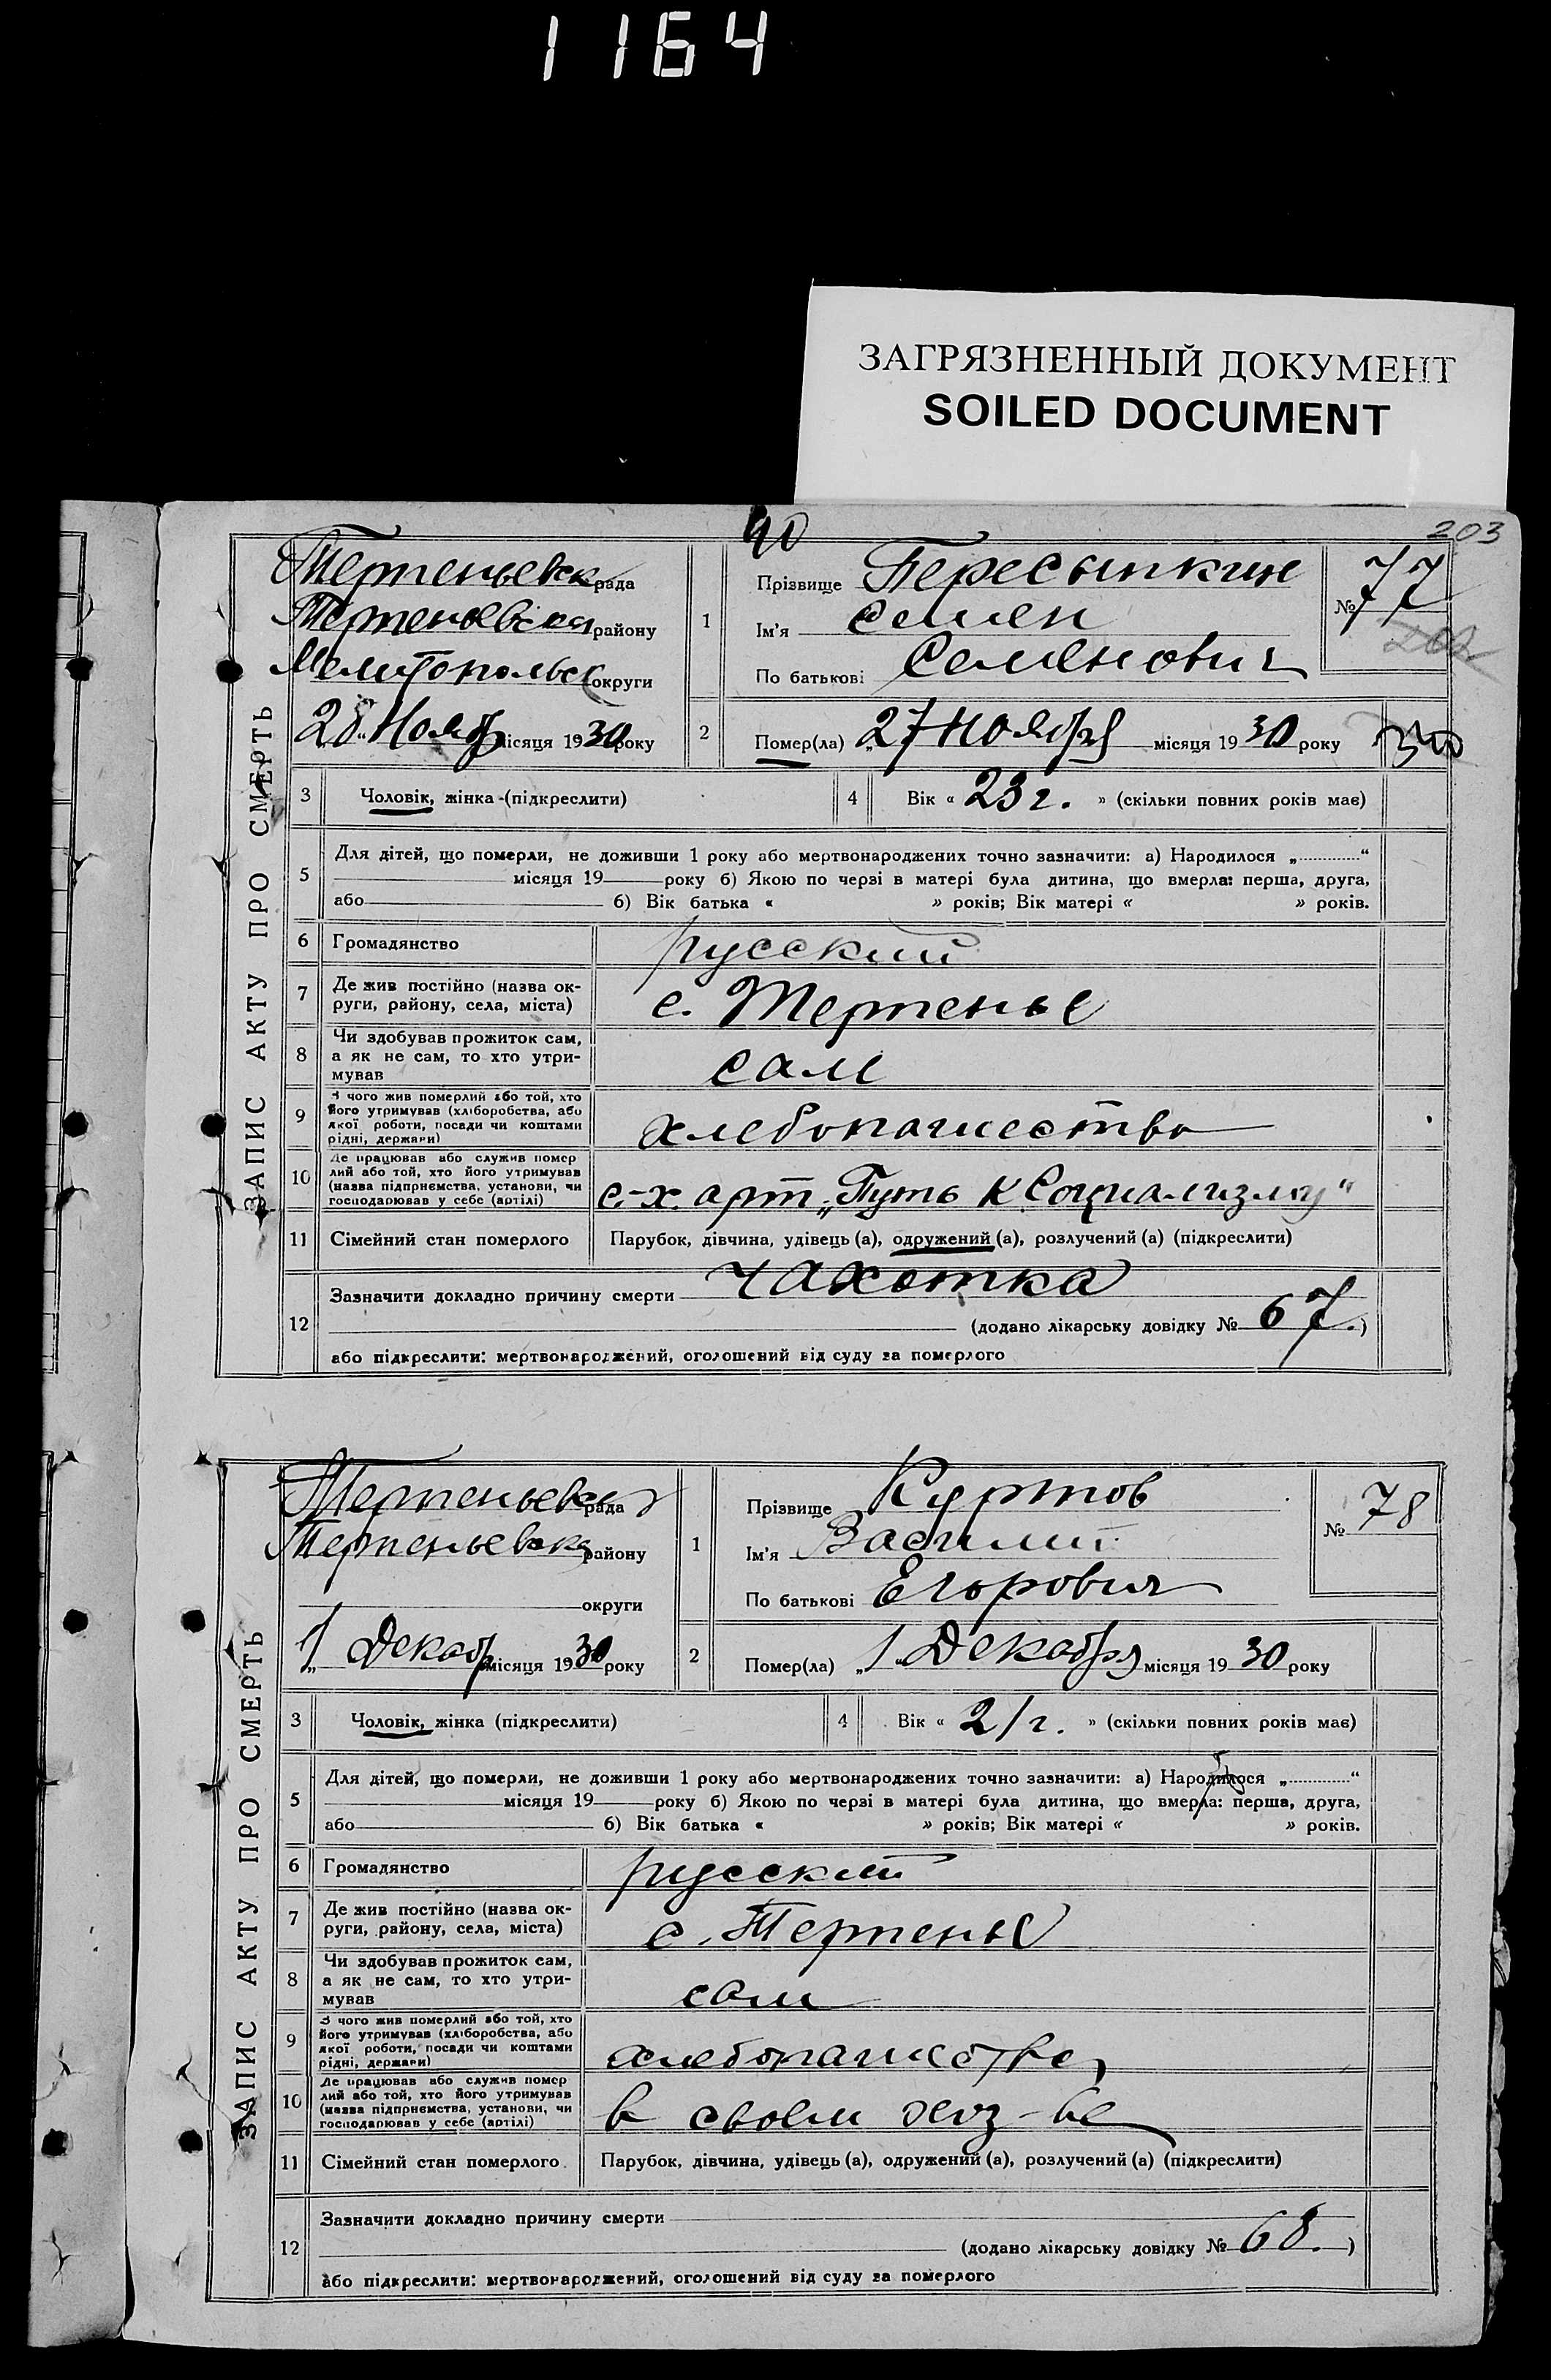 1164
ЗАГРЯЗНЕННЫЙ ДОКУМЕНТ
SOILED DOCUMENT
203
40
ЗАПИС АКТУ ПРО СМЕРТЬ
Терпеньевск рада
Терпеньевская району
Мелитопольск округи
28 Ноябр місяця 1930 року
1
Прізвище Пересыпкин
Ім'я Семен
По батькові Семенович
№ 77
202
2
Помер(ла) „27 ноября місяця 1930 року
3 Чоловік, жінка (підкреслити)
4 Вік « 23 г. » (скільки повних років має)
5
Для дітей, що померли, не доживши 1 року або мертвонароджених точно зазначити: а) Народилося „............“
місяця 19 року б) Якою по черзі в матері була дитина, що вмерла: перша, друга,
або б) Вік батька « » років; Вік матері « » років.
6 Громадянство русский
7 Де жив постійно (назва ок-
руги, району, села, міста)
с. Терпенье
8 Чи здобував прожиток сам,
а як не сам, то хто утри-
мував
сам
9 З чого жив померлий або той, хто
його утримував (хліборобства, або
якої роботи, посади чи коштами
рідні, держави)
хлебопашество
10 Де працював або служив помер
лий або той, хто його утримував
(назва підприємства, установи, чи
господарював у себе (артілі)
с-х. арт „Путь к Социализму“
11 Сімейний стан померлого Парубок, дівчина, удівець (а), одружений (а), розлучений (а) (підкреслити)
12
Зазначити докладно причину смерти чахотка
(додано лікарську довідку № 67.)
або підкреслити: мертвонароджений, оголошений від суду за померлого
ЗАПИС АКТУ ПРО СМЕРТЬ
Терпеньевск рада
Терпеньевск району
округи
„1 Декабр місяця 1930 року
1
Прізвище Куртов
Ім'я Василий
По батькові Егорович
№ 78
2
Помер(ла) „1“ Декабря місяця 1930 року
3 Чоловік, жінка (підкреслити)
4 Вік « 21 г. » (скільки повних років має)
5
Для дітей, що померли, не доживши 1 року або мертвонароджених точно зазначити: а) Народилося „............“
місяця 19 року б) Якою по черзі в матері була дитина, що вмерла: перша, друга,
або б) Вік батька « » років; Вік матері « » років.
6 Громадянство русский
7 Де жив постійно (назва ок-
руги, району, села, міста)
с. Терпенье
8 Чи здобував прожиток сам,
а як не сам, то хто утри-
мував
сам
9 З чого жив померлий або той, хто
його утримував (хліборобства, або
якої роботи, посади чи коштами
рідні, держави)
хлебопашество
10 Де працював або служив помер
лий або той, хто його утримував
(назва підприємства, установи, чи
господарював у себе (артілі)
в своем хоз-ве
11 Сімейний стан померлого. Парубок, дівчина, удівець (а), одружений (а), розлучений (а) (підкреслити)
12
Зазначити докладно причину смерти
(додано лікарську довідку № 68.)
або підкреслити: мертвонароджений, оголошений від суду за померлого